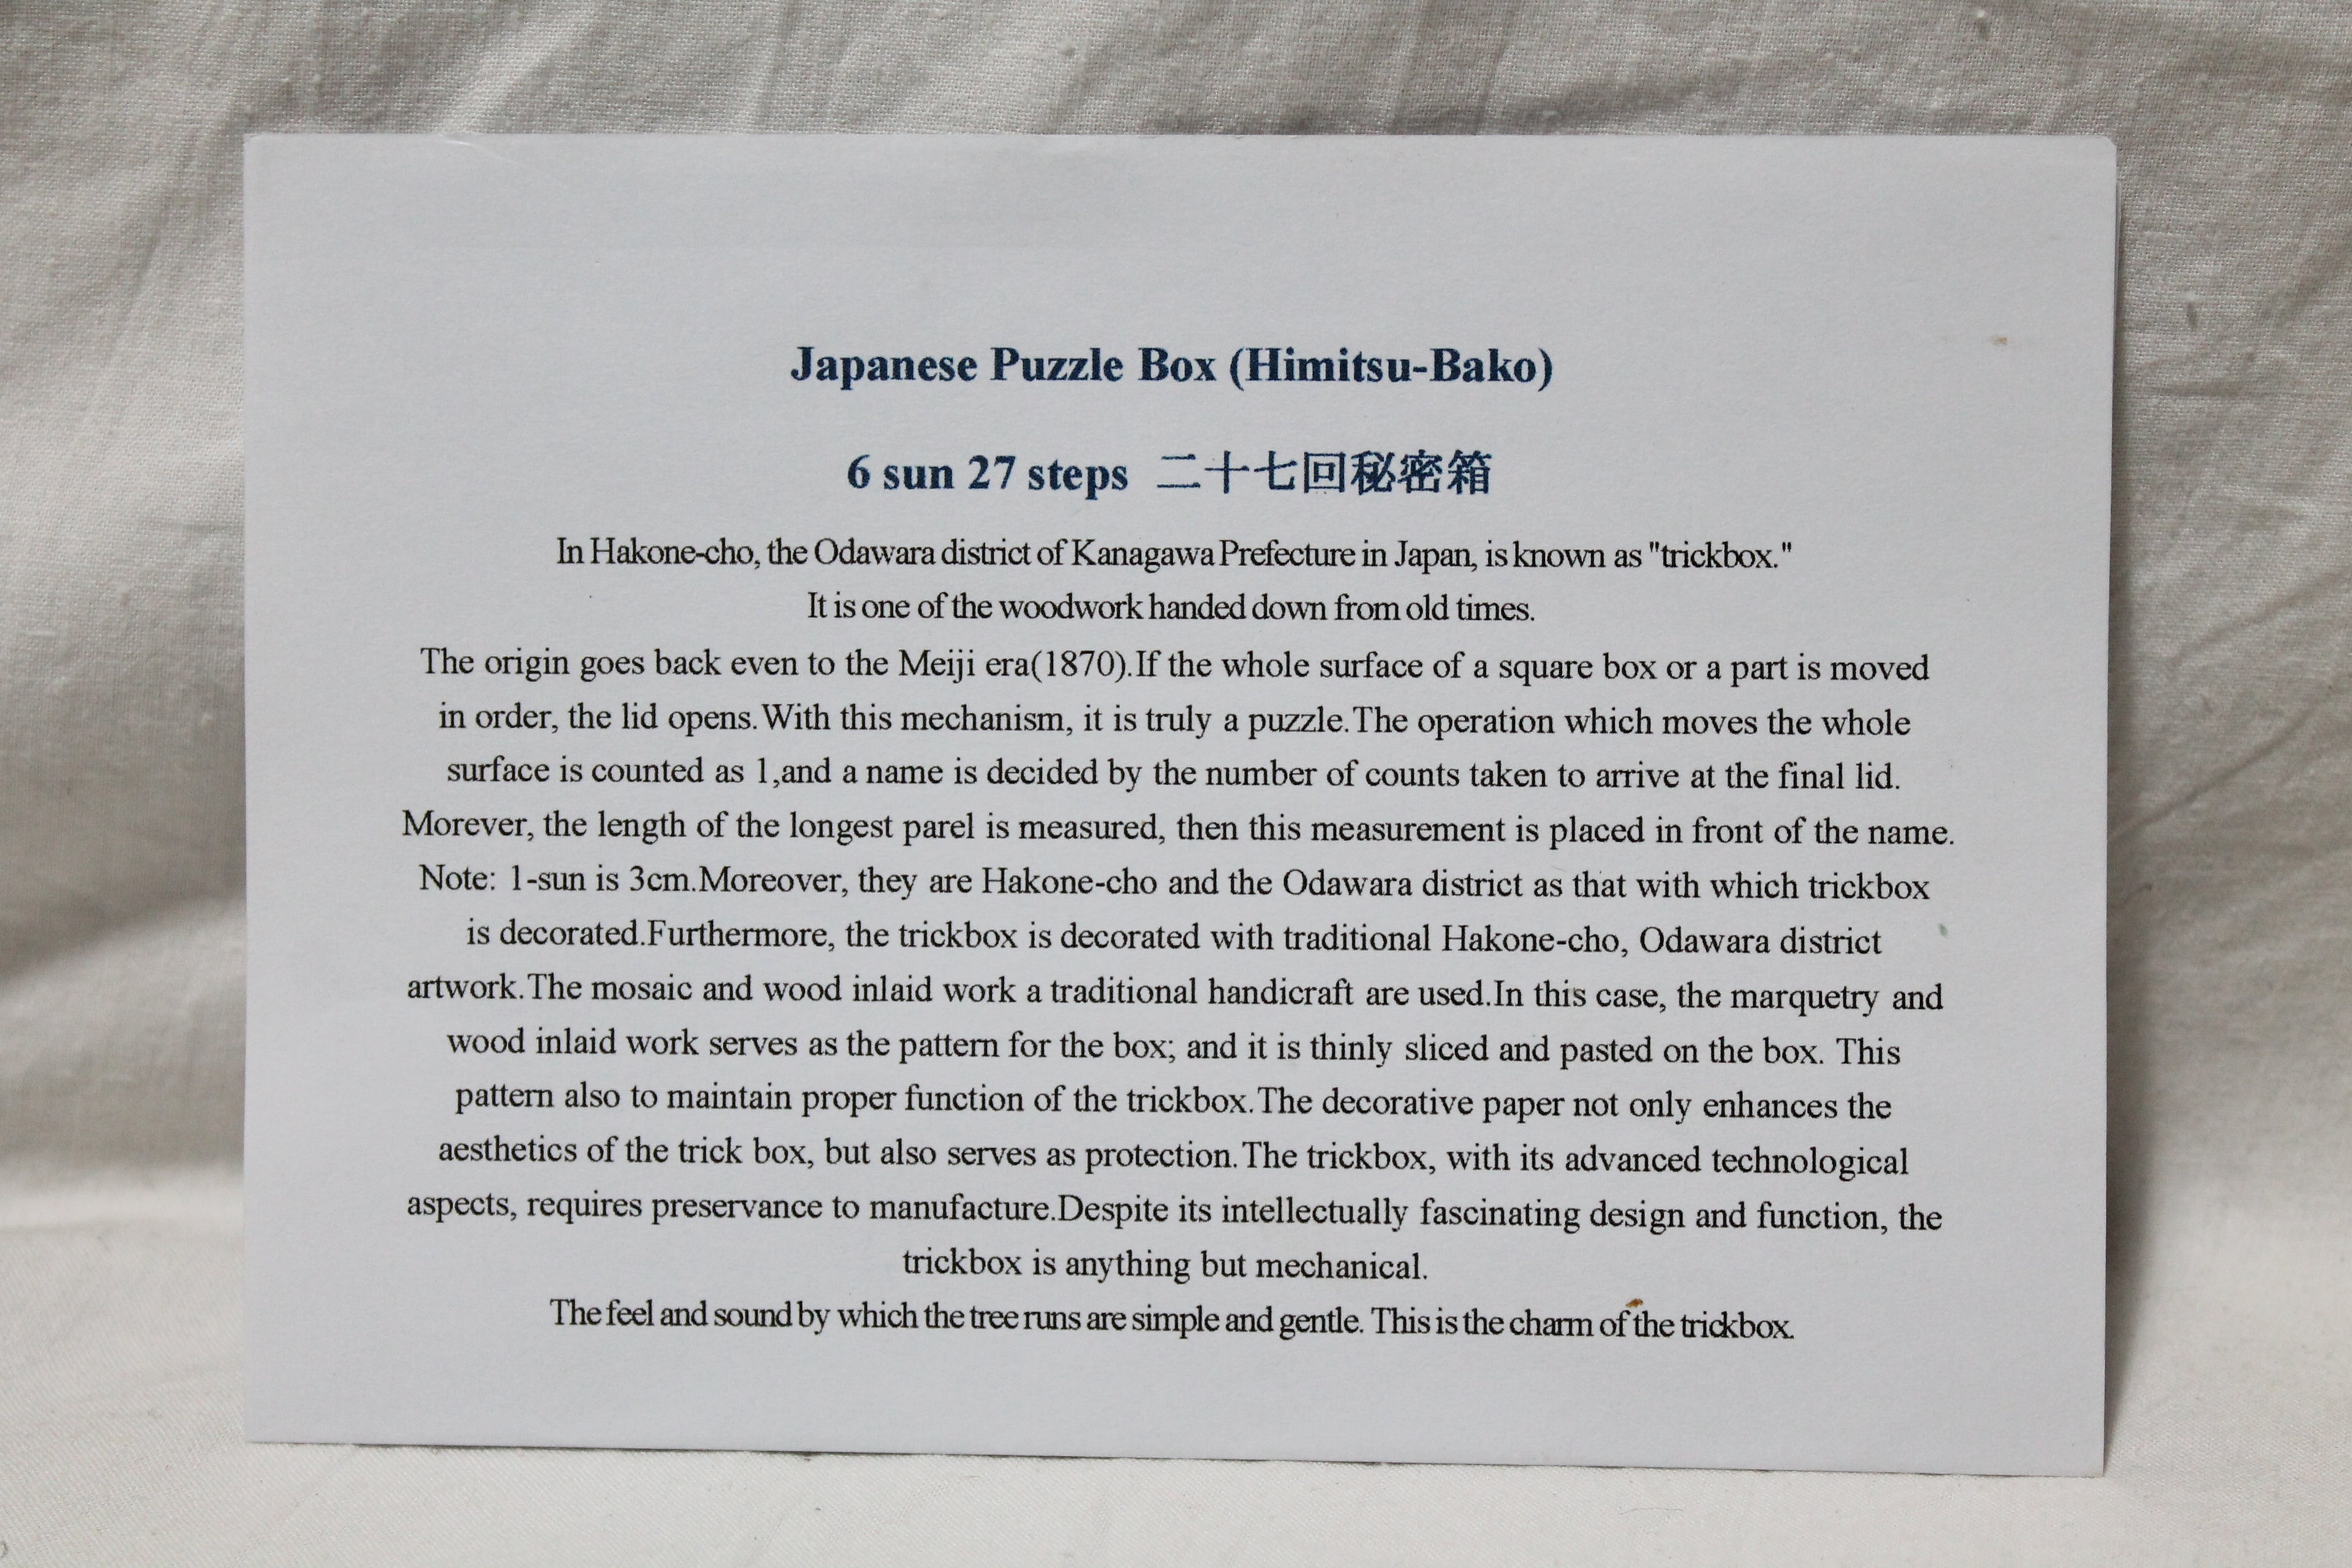 Japanese Puzzle Box (Himitsu-Bako)
6 sun 27 steps 二十七回秘密箱
In Hakone-cho, the Odawara district of Kanagawa Prefecture in Japan, is known as "trickbox."
It is one of the woodwork handed down from old times.
The origin goes back even to the Meiji era(1870).If the whole surface of a square box or a part is moved
in order, the lid opens.With this mechanism, it is truly a puzzle.The operation which moves the whole
surface is counted as 1,and a name is decided by the number of counts taken to arrive at the final lid.
Morever, the length of the longest parel is measured, then this measurement is placed in front of the name.
Note: 1-sun is 3cm.Moreover, they are Hakone-cho and the Odawara district as that with which trickbox
is decorated.Furthermore, the trickbox is decorated with traditional Hakone-cho, Odawara district
artwork.The mosaic and wood inlaid work a traditional handicraft are used.In this case, the marquetry and
wood inlaid work serves as the pattern for the box; and it is thinly sliced and pasted on the box. This
pattern also to maintain proper function of the trickbox.The decorative paper not only enhances the
aesthetics of the trick box, but also serves as protection.The trickbox, with its advanced technological
aspects, requires preservance to manufacture.Despite its intellectually fascinating design and function, the
trickbox is anything but mechanical.
The feel and sound by which the tree runs are simple and gentle. This is the charm of the trickbox.